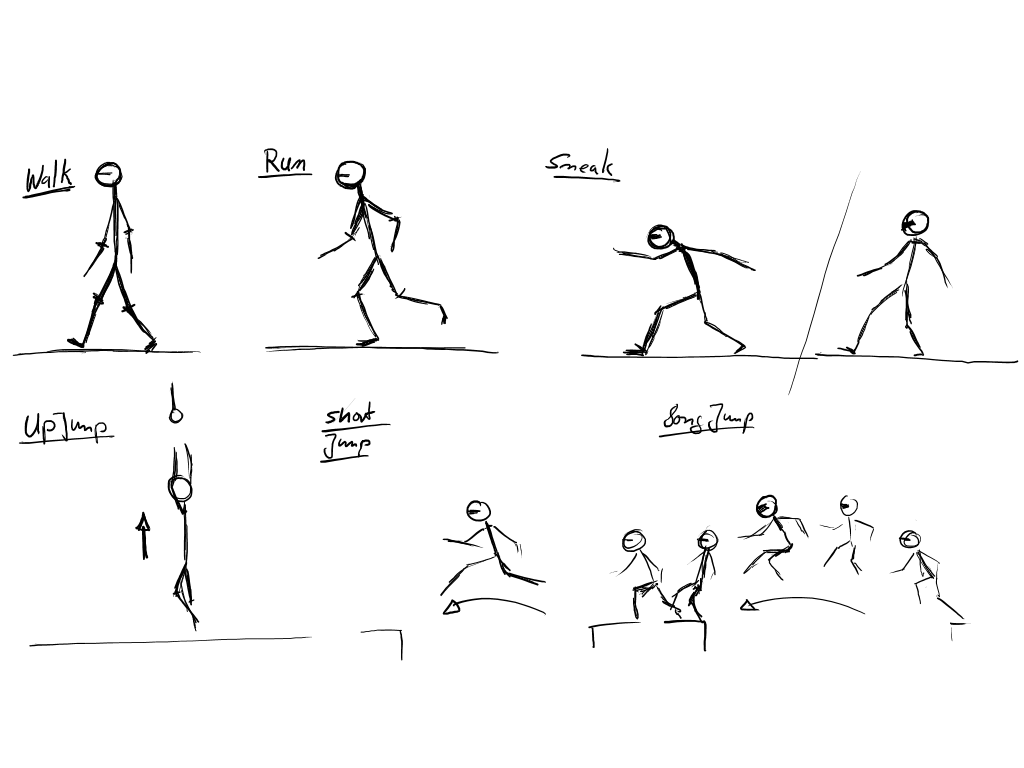 Walk
Run
Sneak
UpJump
short
Jump
Long Jump